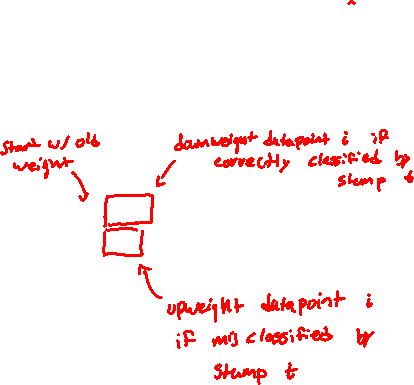 start w/ old
weight
downweight datapoint i if
correctly classified by
stump t
upweight datapoint i
if misclassified by
stump t